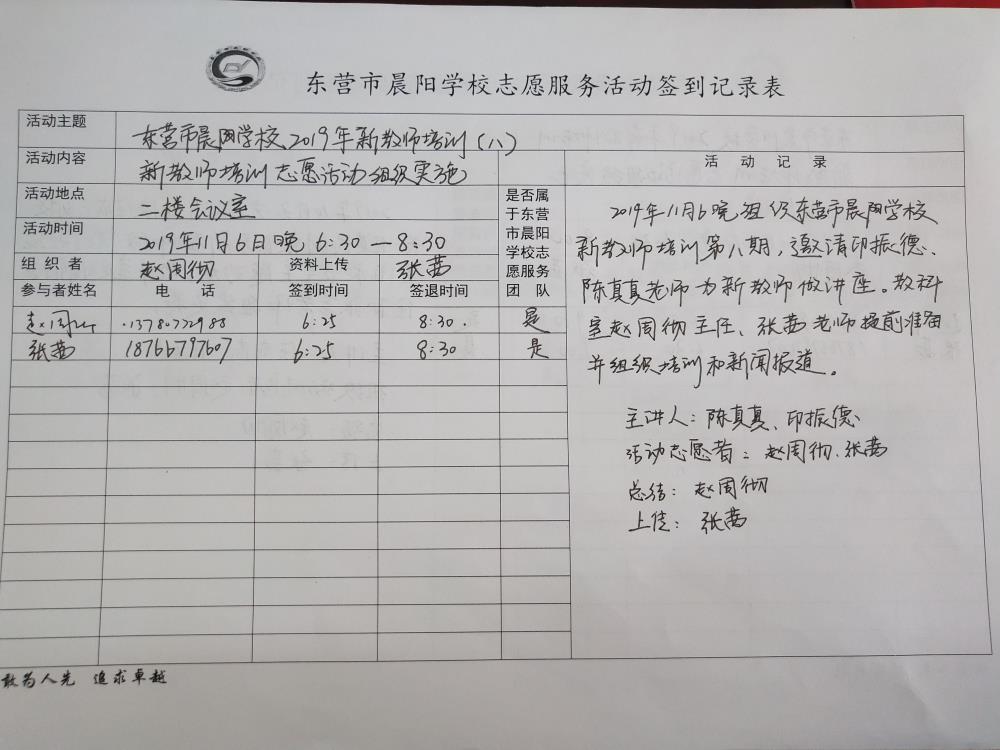 东营市晨阳学校志愿服务活动签到记录表
活动主题 东营市晨阳学校2019年新教师培训（八）
活动内容 新教师培训志愿活动组织实施
活动地点 二楼会议室
活动时间 2019年11月6日晚 6:30—8:30
组织者 赵周彻 资料上传 张茜
是否属于东营市晨阳学校志愿服务团队
参与者姓名 电话 签到时间 签退时间
赵周 13780772988 6:25 8:30. 是
张茜 18766797607 6:25 8:30 是
活动记录
2019年11月6晚组织东营市晨阳学校
新教师培训第八期，邀请印振德、
陈真真老师为新教师做讲座。教科
室赵周彻主任、张茜老师提前准备
并组织培训和新闻报道。
主讲人：陈真真、印振德
活动志愿者：赵周彻、张茜
总结：赵周彻
上传：张茜
敢为人先 追求卓越